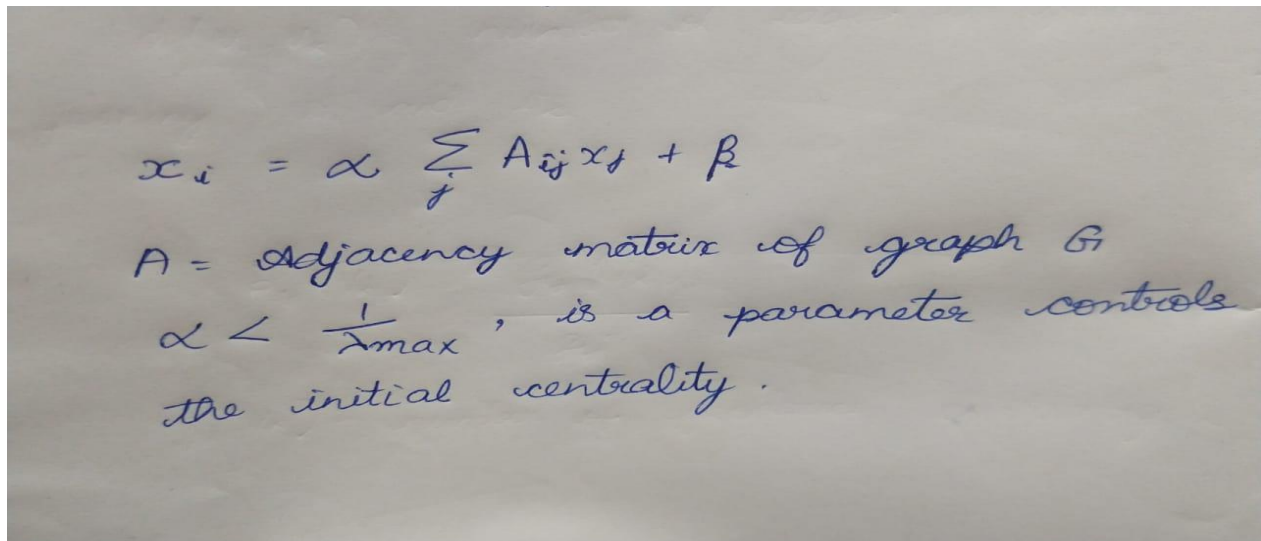 x_i = α Σ_j A_ij x_j + β
A = Adjacency matrix of graph G
α < 1/λmax , is a parameter controls
the initial centrality .